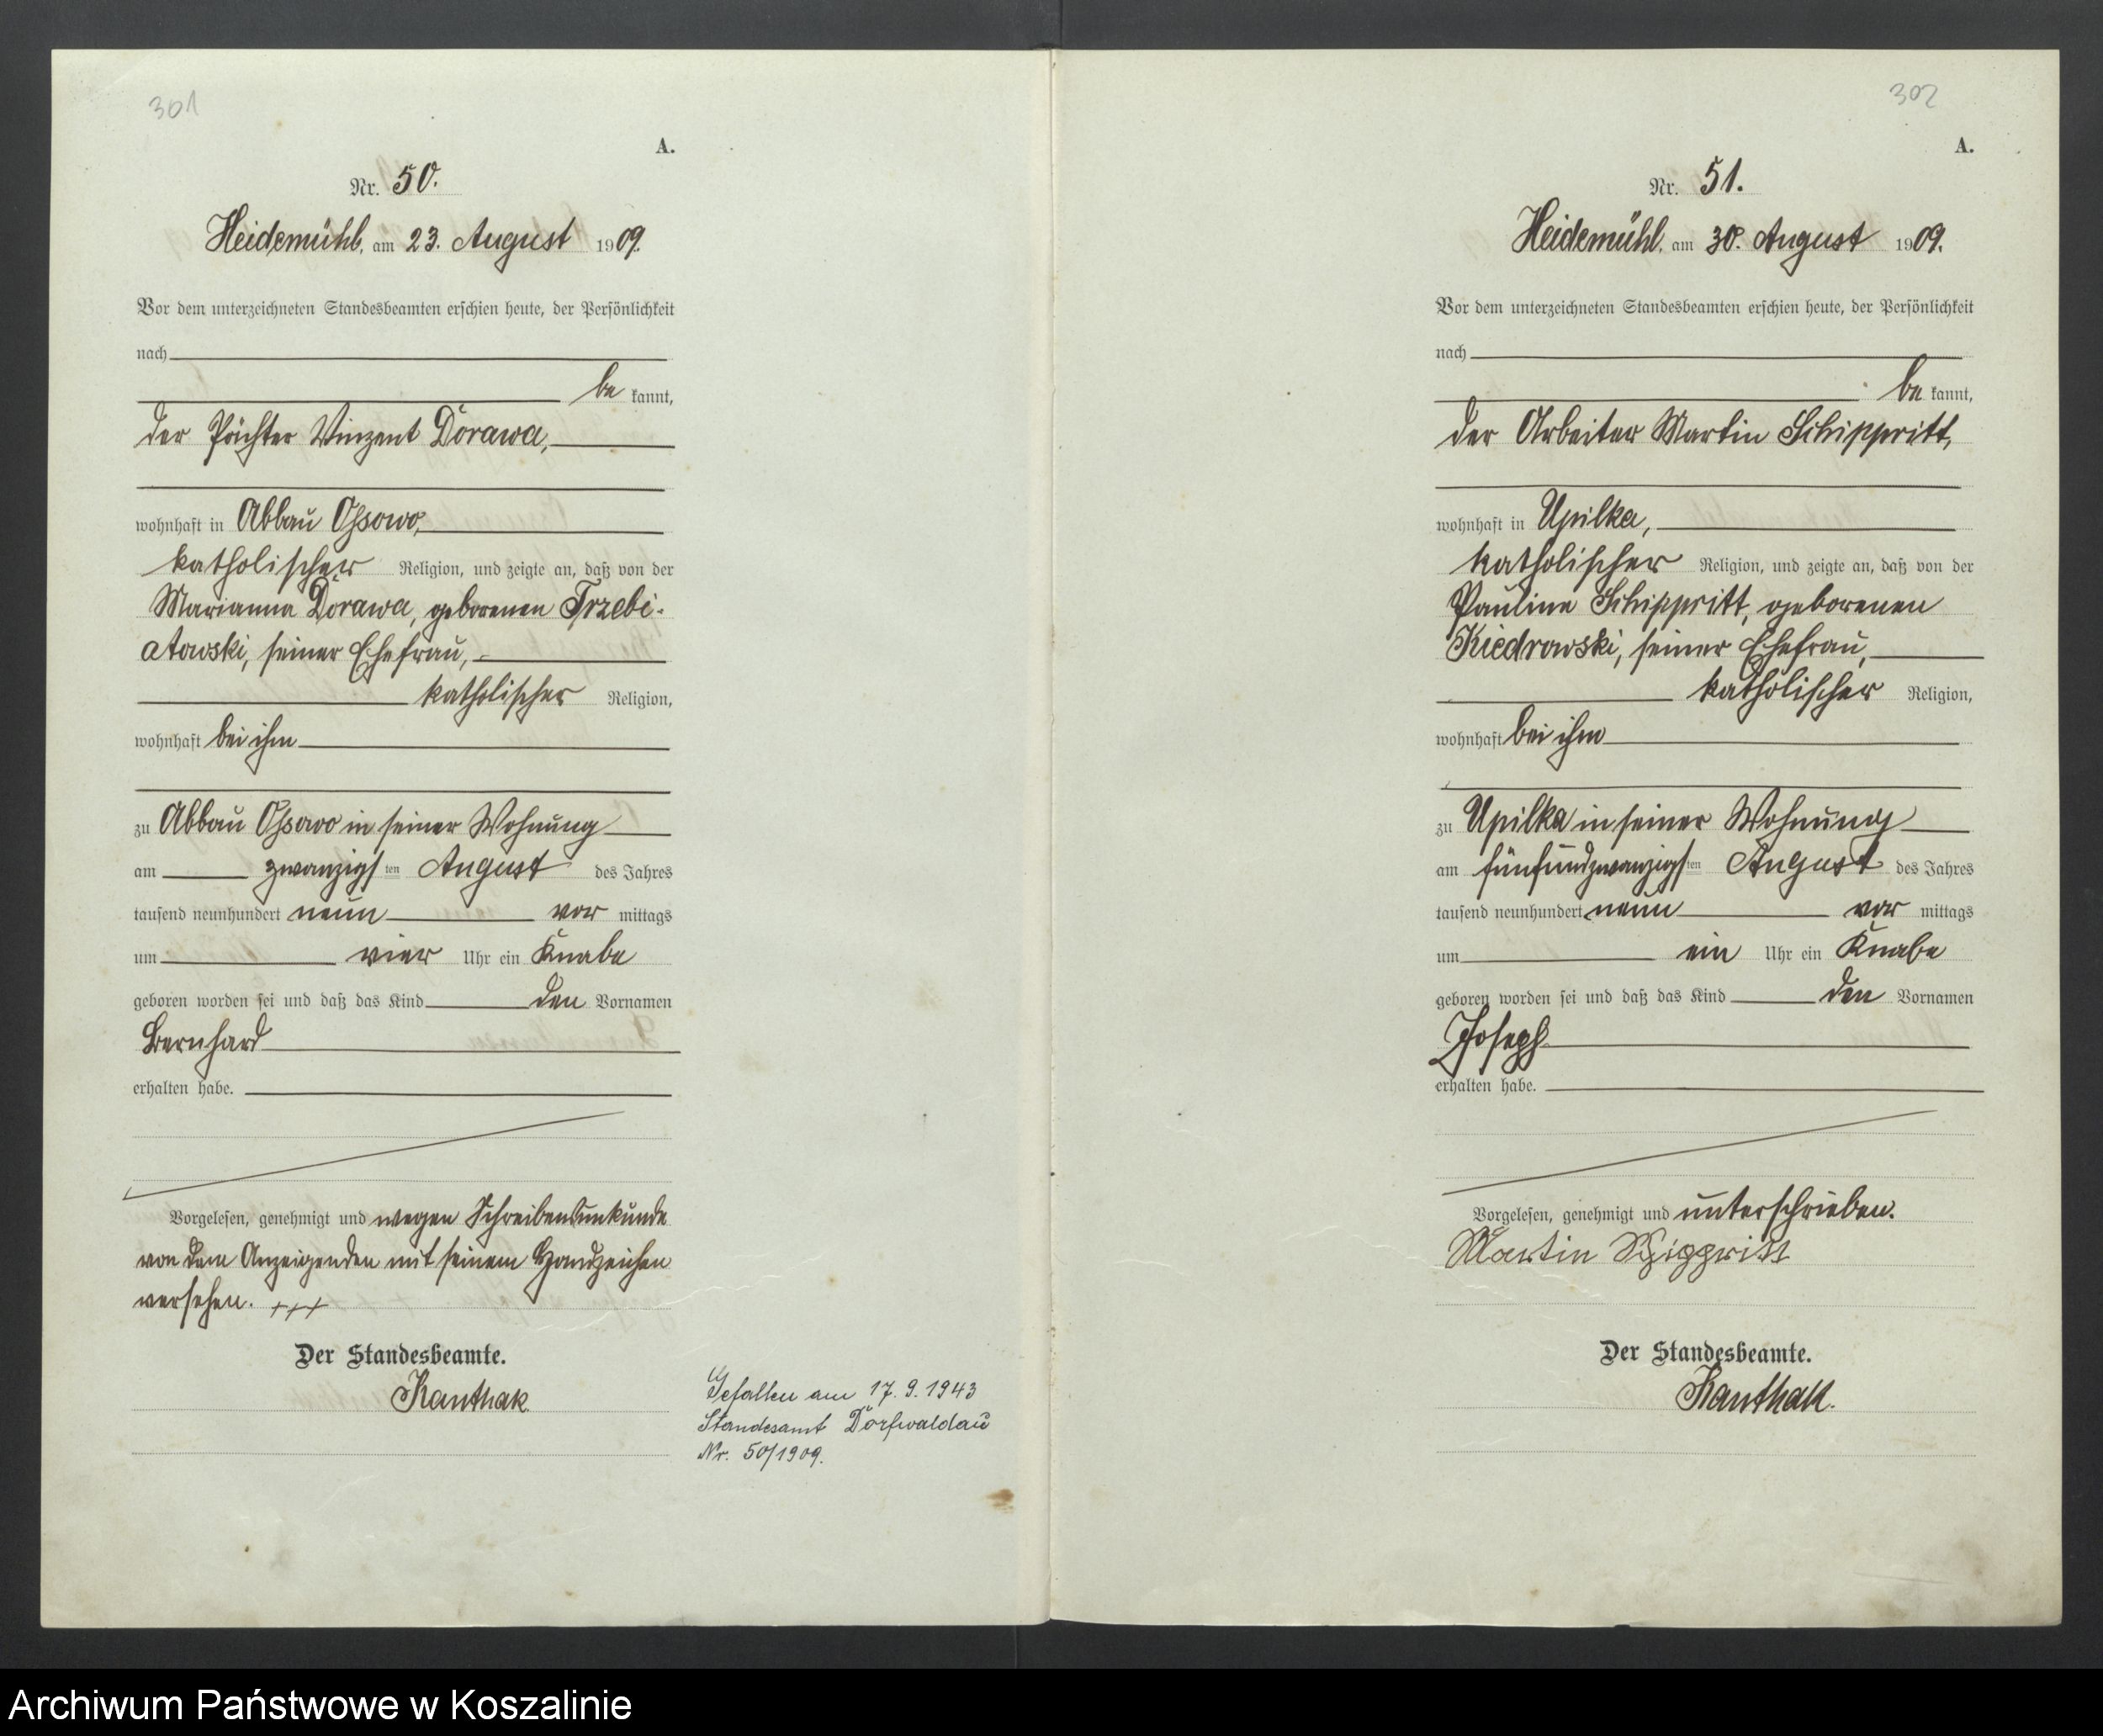 301
A.
Nr. 50.
Heidemühl, am 23. August 1909.
Vor dem unterzeichneten Standesbeamten erschien heute, der Persönlichkeit
nach
be kannt,
der Pächter Vinzent Dorawa,
wohnhaft in Abbau Ossowo,
katholischer Religion, und zeigte an, daß von der
Marianna Dorawa, geborenen Trzebi-
atowski, seiner Ehefrau,
katholischer Religion,
wohnhaft bei ihm
zu Abbau Ossowo in seiner Wohnung
am zwanzigsten August des Jahres
tausend neunhundert neun vor mittags
um vier Uhr ein Knabe
geboren worden sei und daß das Kind den Vornamen
Bernhard
erhalten habe.
Vorgelesen, genehmigt und wegen Schreibensunkunde
von dem Anzeigenden mit seinem Handzeichen
versehen. +++
Der Standesbeamte.
Kanthak
Gefallen am 17.9.1943
Standesamt Dorfwaldau
Nr. 50/1909.
302
A.
Nr. 51.
Heidemühl, am 30. August 1909.
Vor dem unterzeichneten Standesbeamten erschien heute, der Persönlichkeit
nach
be kannt,
der Arbeiter Martin Schippritt,
wohnhaft in Upilka,
katholischer Religion, und zeigte an, daß von der
Pauline Schippritt, geborenen
Kiedrowski, seiner Ehefrau,
katholischer Religion,
wohnhaft bei ihm
zu Upilka in seiner Wohnung
am fünfundzwanzigsten August des Jahres
tausend neunhundert neun vor mittags
um ein Uhr ein Knabe
geboren worden sei und daß das Kind den Vornamen
Joseph
erhalten habe.
Vorgelesen, genehmigt und unterschrieben.
Martin Schippritt
Der Standesbeamte.
Kanthak.
Archiwum Państwowe w Koszalinie